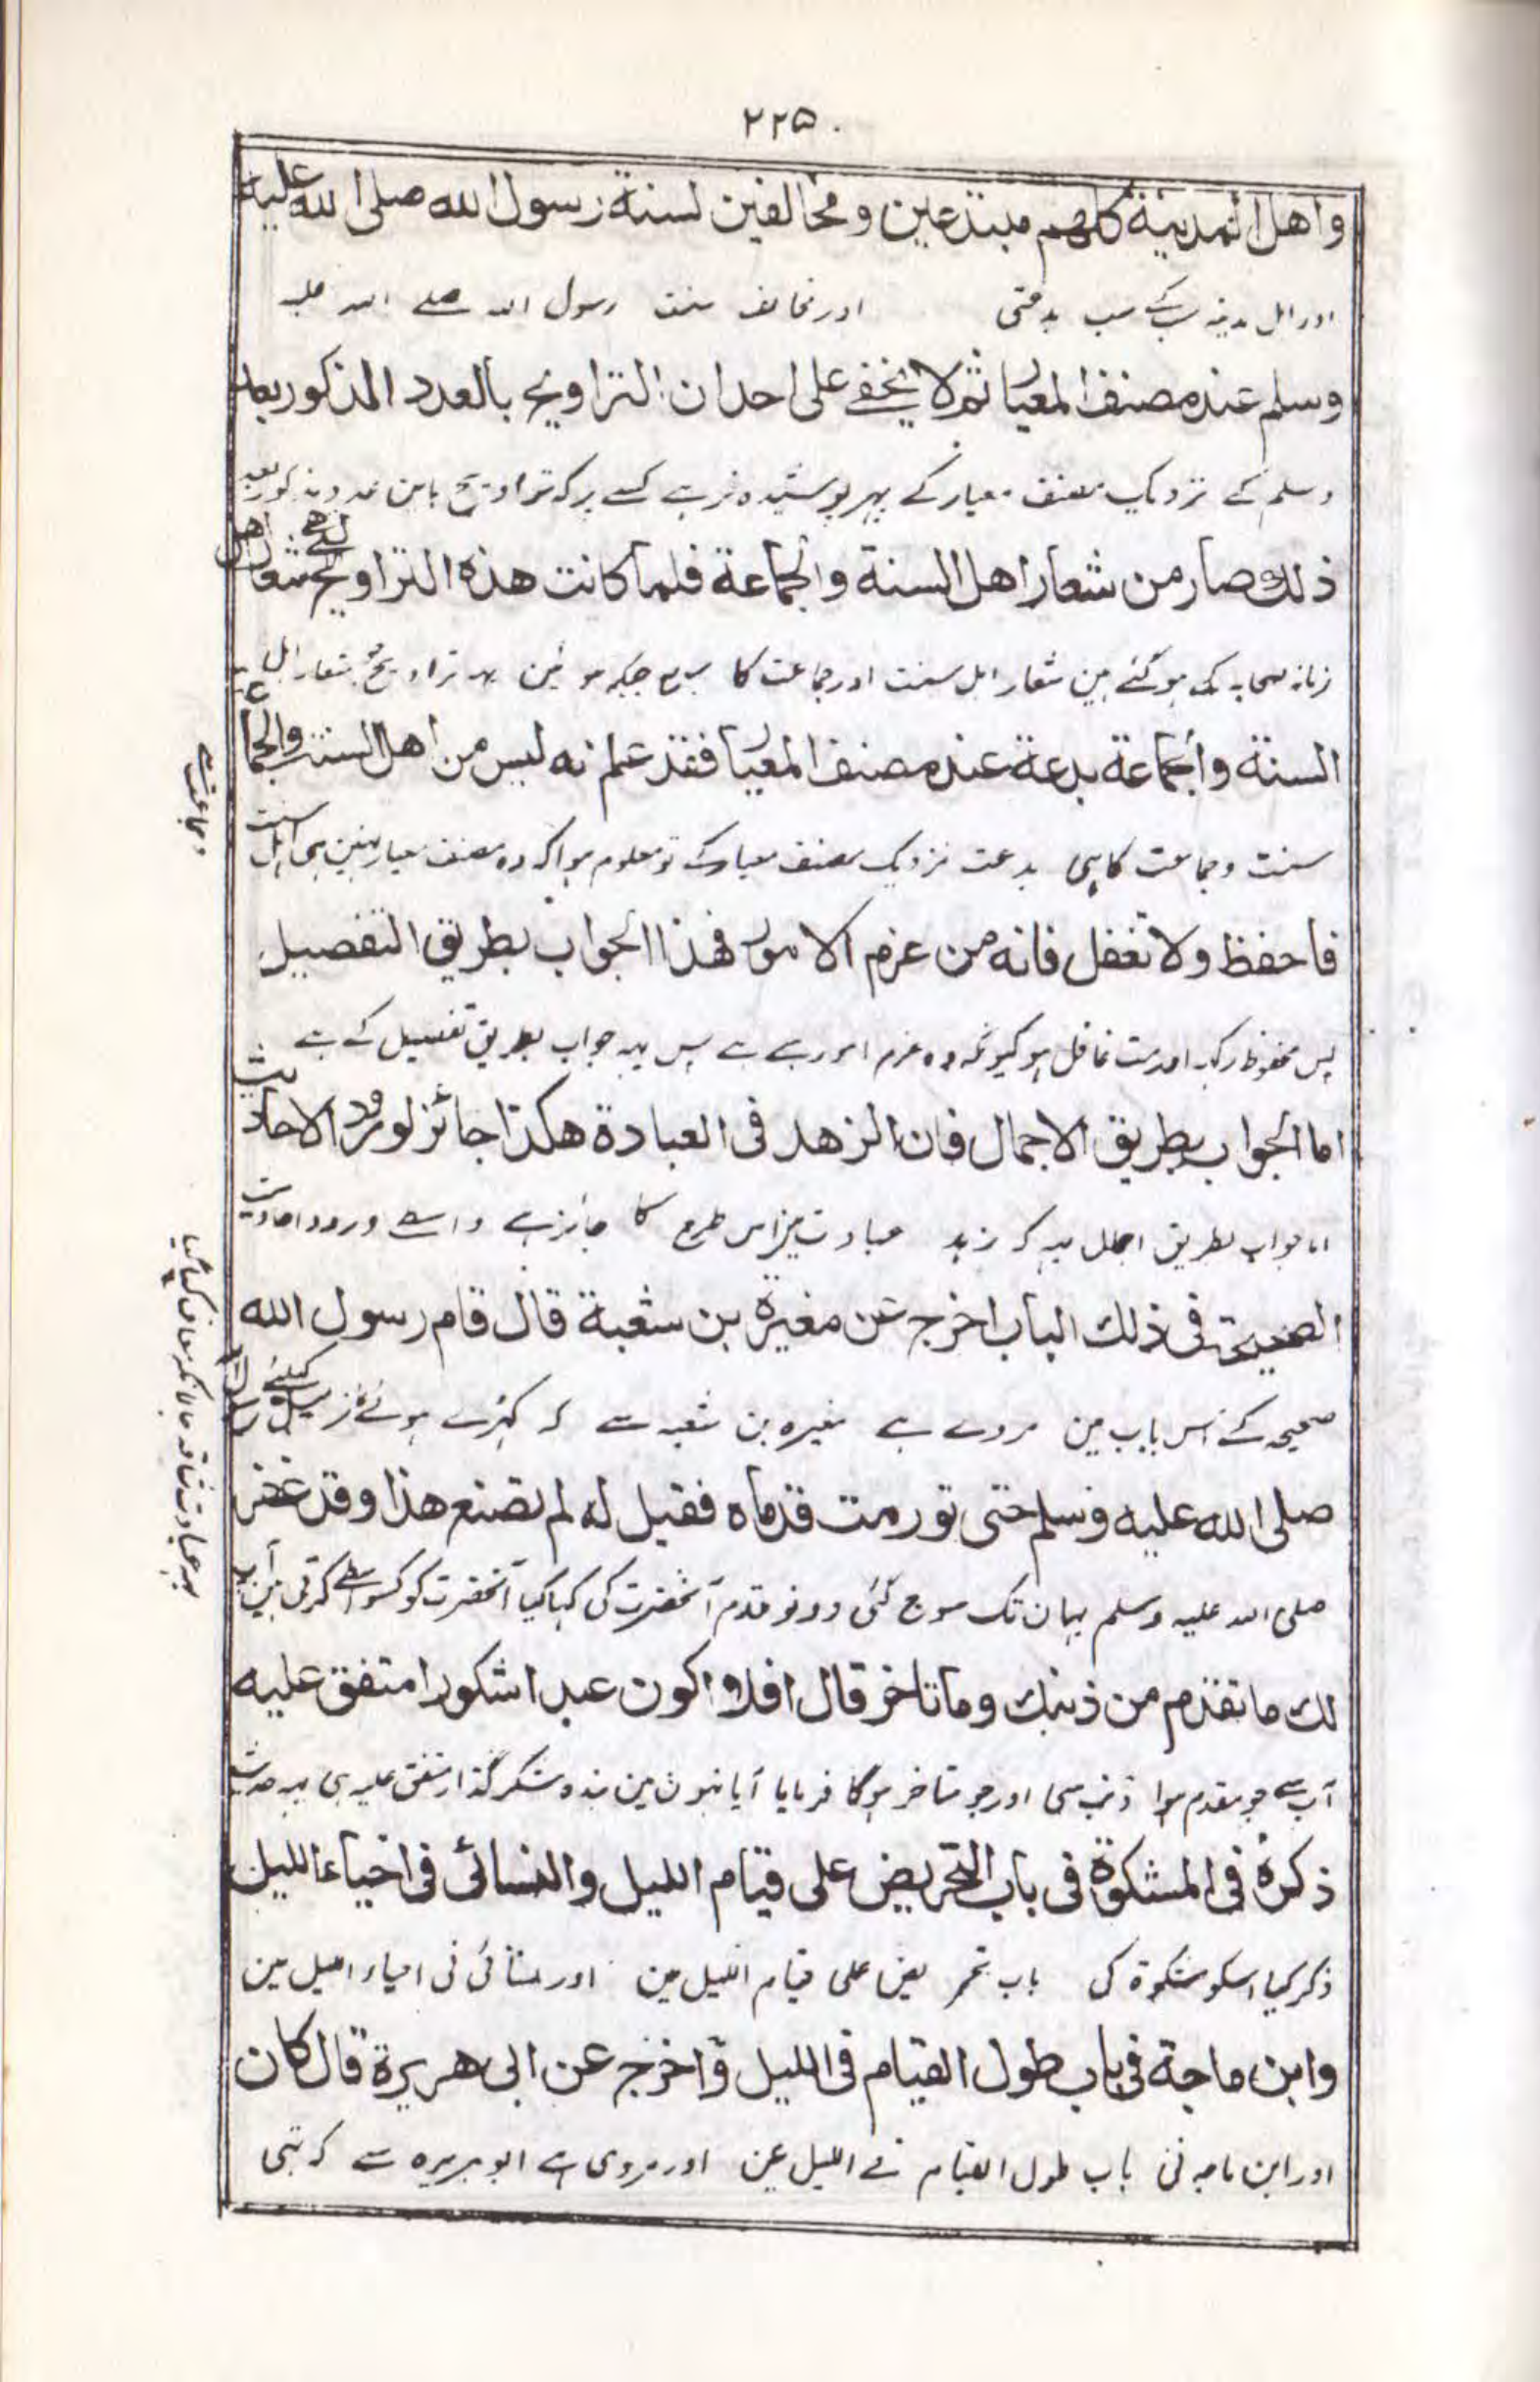 ۲۲۵
واهل المدينة كلهم مبتدعين ومخالفين لسنة رسول الله صلى الله عليه
اور اہل مدینہ سب کے سب بدعتی اور مخالف سنت رسول اللہ صلے اللہ علیہ
وسلم عند مصنف المعيار ثم لا يخفے على احد ان التراويح بالعدد المذكور بعد
وسلم کے نزدیک مصنف معیار کے پہر پوشیدہ نرہے کسے پر کہ تراویح باین عدد مذکور بعد
ذلك صار من شعار اهل السنة والجماعة فلما كانت هذه التراويح التے هے شعار اهل
زمانہ صحابہ کی ہو گئے ہین شعار اہل سنت اور جماعت کا پہر جبکہ ہوئین یہ تراویح شعار اہل
السنة والجماعة بدعة عند مصنف المعيار فقد علم انه ليس من اهل السنت والجماعة
سنت وجماعت کا ہی بدعت نزدیک مصنف معیار کے تو معلوم ہوا کہ وہ مصنف معیار نہین ہی اہل سنت
وجماعت سے
فاحفظ ولا تغفل فانه من عزم الامور فهذا الجواب بطريق التفصيل
پس محفوظ رکہ اور مت غافل ہو کیونکہ وہ عزم امور سے ہے پس یہہ جواب بطریق تفصیل کے ہے
اما الجواب بطريق الاجمال فان الزهد فى العبادة هكذا جائز لورود الاحاديث
اما جواب بطریق اجمال یہہ کہ زہد عبادت مین اس طرح کا جائز ہے واسطے ورود احادیث
الصحيحة فى ذلك الباب اخرج عن مغيرة بن شعبة قال قام رسول الله
صحیحہ کے اس باب مین مروے ہے مغیرہ بن شعبہ سے کہ کہڑے ہوئے نماز کیلئے رسول اللہ
صلى الله عليه وسلم حتى تورمت قدماه فقيل له لم تصنع هذا وقد غفر
صلی اللہ علیہ وسلم یہان تک سوج گئی دونو قدم آنحضرت کی کہا گیا آنحضرت کو کسواسطے کرتی ہین آپ
یہہ عبادت شاقہ حالانکہ معاف کیا گیا
لك ما تقدم من ذنبك وما تاخر قال افلا اكون عبدا شكورا متفق عليه
آپ سے جو مقدم ہوا ذنب سی اور جو متاخر ہوگا فرمایا آیا نہون مین بندہ شکر گذار متفق علیہ ہی یہہ حدیث
ذكره فى المشكوة فى باب التحريض على قيام الليل والنسائى فى احياء الليل
ذکر کیا اسکو مشکوة کی باب تحریض علی قیام اللیل مین اور نسائی نی احیاء اللیل مین
وابن ماجة فى باب طول القيام فى الليل واخرج عن ابى هريرة قال كان
اور ابن ماجہ نی باب طول القیام فے اللیل مین اور مروی ہے ابو ہریرہ سے کہ تہی